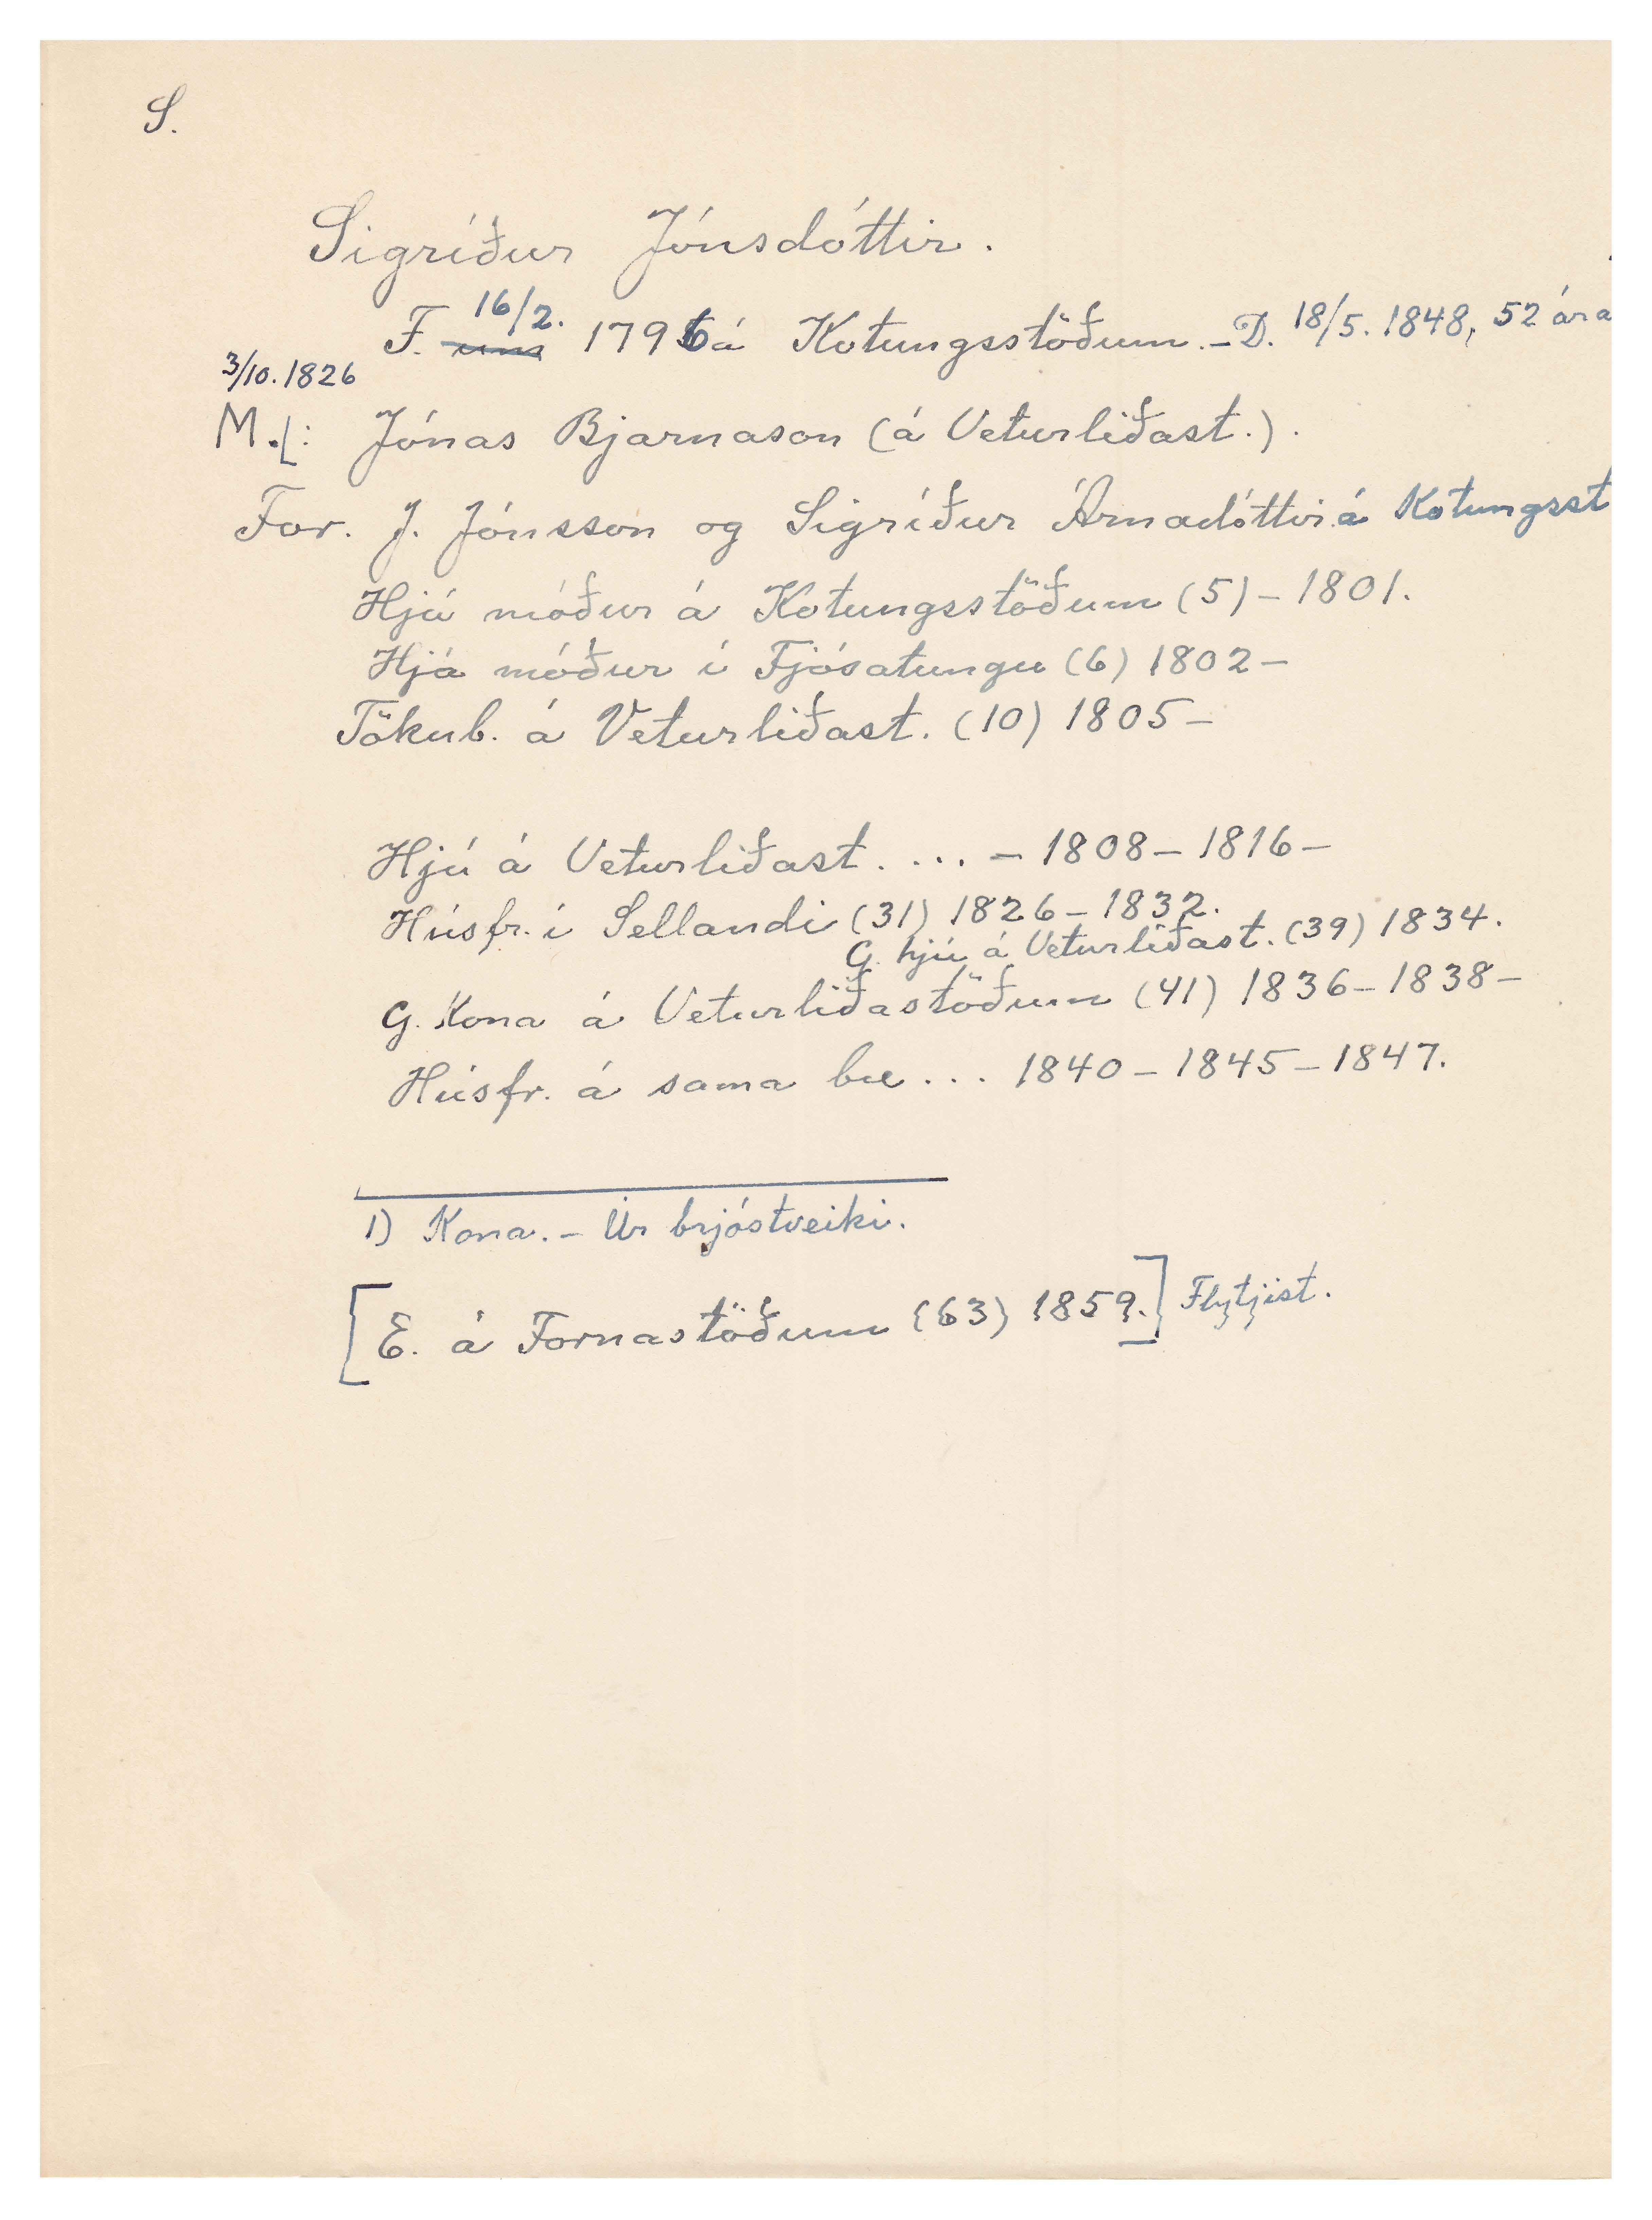 S.
Sigríður Jónsdóttir.
F. 16/2. 1796 á Kotungsstöðum. – D. 18/5. 1848, 52 ára
3/10. 1826
M.: Jónas Bjarnason (á Veturliðast.).
For. J. Jónsson og Sigríður Árnadóttir á Kotungsst
Hjá móður á Kotungsstöðum (5) – 1801.
Hjá móður í Fjósatungu (6) 1802 –
Tökub. á Veturliðast. (10) 1805 –
Hjú á Veturliðast. ... – 1808 – 1816 –
Húsfr. í Sellandi (31) 1826 – 1832.
G. hjú á Veturliðast. (39) 1834.
G. Kona á Veturliðastöðum (41) 1836 – 1838 –
Húsfr. á sama bæ ... 1840 – 1845 – 1847.
1) Kona. – Úr brjóstveiki.
[E. á Fornastöðum (63) 1859.] Flytjist.